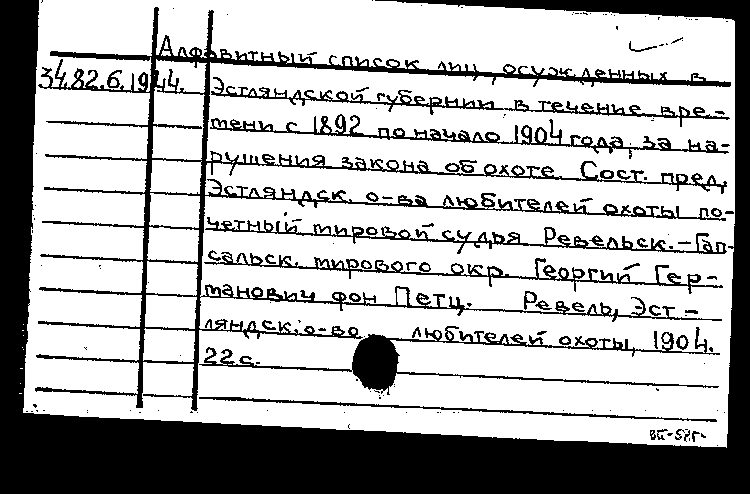 Алфавитный список лиц, осужденных в
34.82.6.1944. Эстляндской губернии в течение вре-
мени с 1892 по начало 1904 года, за на-
рушения закона об охоте. Сост. пред.
Эстляндск. о-ва любителей охоты по-
четный мировой судья Ревельск.-Гап-
сальск. мирового окр. Георгий Гер-
манович фон Петц. Ревель, Эст-
ляндск. о-во любителей охоты, 1904.
22 с.